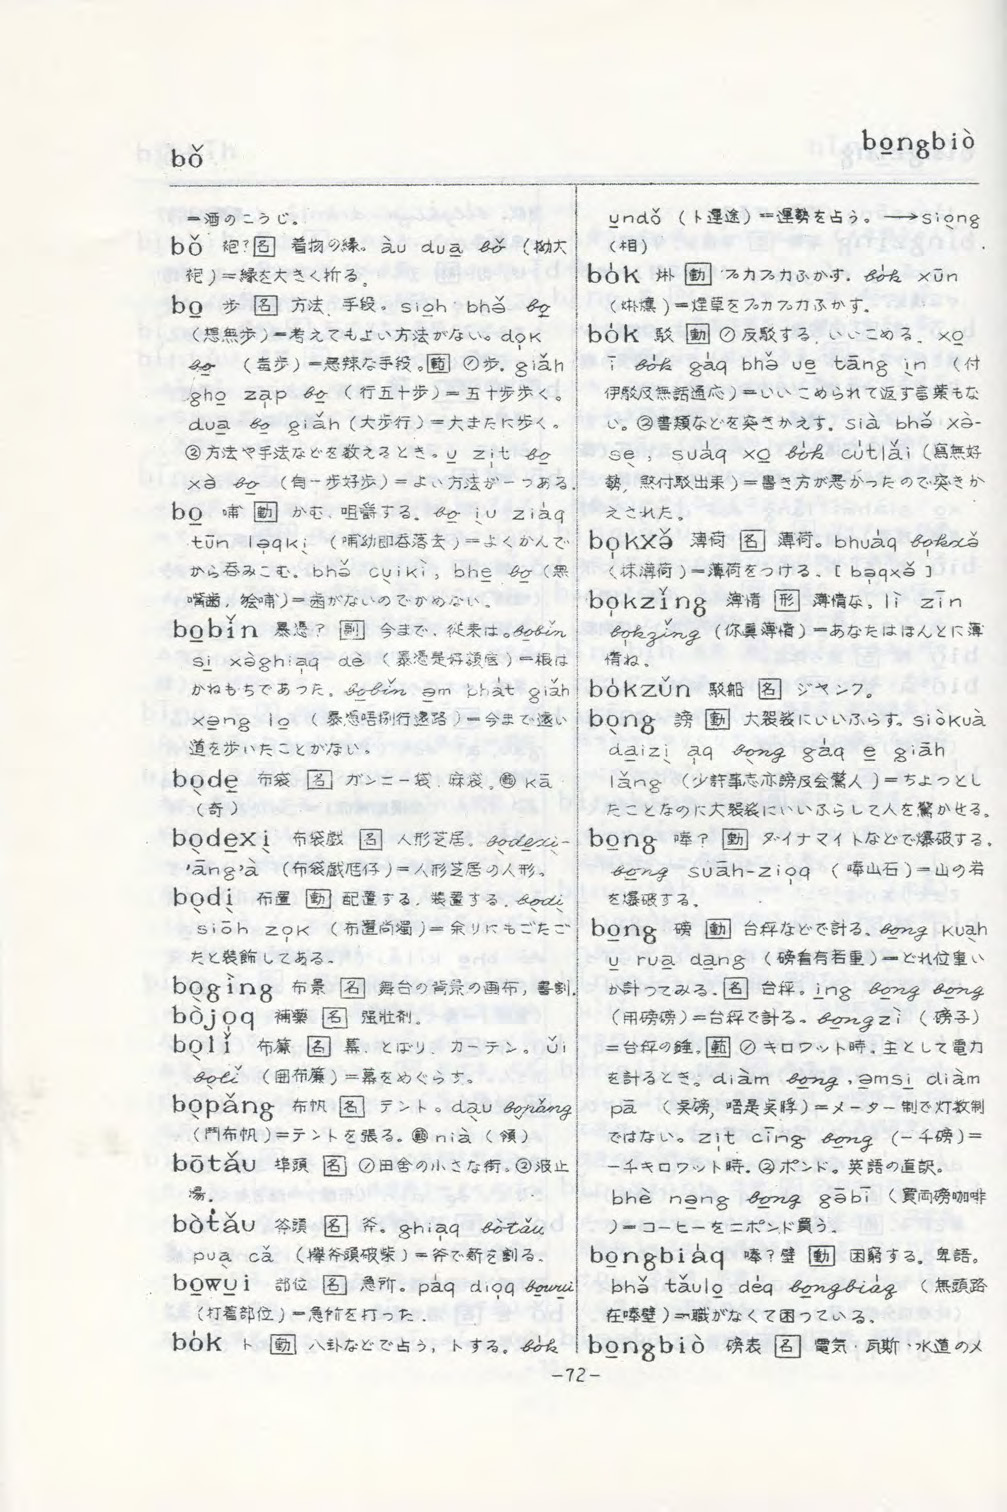 bǒ
bo̱ngbiò
＝酒のこうじ。
bǒ 袍?[名] 着物の縁。àu dua̱ bǒ (拗大
袍)＝縁を大きく折る。
bo̱ 步 [名] 方法、手段。sio̱h bhə̌ bo̱
(想無步)＝考えてもよい方法がない。do̍k
bo̱ (毒步)＝悪辣な手段。[動] ①歩。giǎh
gho̱ za̍p bo̱ (行五十步)＝五十歩歩く。
dua̱ bo̱ giǎh (大步行)＝大またに歩く。
②方法や手法などを数えるとき。u̱ zi̍t bo̱
xə̀ bo̱ (有一步好步)＝よい方法が一つある。
bo̱ 哺 [動] かむ、咀嚼する。bo̱ iu ziàq
tūn lə̍qki̱ (哺幼即吞落去)＝よくかんで
から呑みこむ。bhə̌ cuīki, bhe̱ bo̱ (無
嘴齒, 袂哺)＝歯がないのでかめない。
bo̱bǐn 暴憑? [副] 今まで、従来は。bo̱bǐn
si̱ xəghia̍q dè (暴憑是好額底)＝根は
かねもちであった。bo̱bǐn əm bhat giǎh
xəng lo̱ (暴憑唔捌行遠路)＝今まで遠い
道を歩いたことがない。
bo̱de̱ 布袋 [名] ガンニー袋、麻袋。 kā
(奇)
bo̱de̱xi̱ 布袋戲 [名] 人形芝居。bo̱de̱xi̱-
'āng'à (布袋戲尪仔)＝人形芝居の人形。
bo̱di̱ 布置 [動] 配置する、装置する。bo̱di̱
siōh zo̍k (布置尚濁)＝余りにもごたご
たと装飾してある。
bo̱gìng 布景 [名] 舞台の背景の画布,書割。
bòjo̍q 補藥 [名] 强壮剤。
bo̱lǐ 布簾 [名] 幕、とばり、カーテン。ǔi
bo̱lǐ (囲布簾)＝幕をめぐらす。
bo̱pǎng 布帆 [名] テント。da̱u bo̱pǎng
(鬥布帆)＝テントを張る。 nià (領)
bōtǎu 埠頭 [名] ①田舎の小さな街。②波止
場。
bòtǎu 斧頭 [名] 斧。ghia̍q bòtǎu
pua̱ cǎ (攑斧頭破柴)＝斧で薪を割る。
bo̱wu̱i 部位 [名] 急所。pàq dio̍q bo̱wu̱i
(打着部位)＝急所を打った。
bòk 卜 [動] 八卦などで占う,卜する。bòk
undǒ (卜運途)＝運勢を占う。──→sio̱ng
(相)
bo̍k 烞 [動] プカプカふかす。bo̍k xūn
(烞燻)＝煙草をプカプカふかす。
bòk 駁 [動] ①反駁する,いいこめる。xo̱
ī bòk gàq bhə̌ ue̱ tāng i̱n (付
伊駁及無話通応)＝いいこめられて返す言葉もな
い。②書類などを突きかえす。sià bhə̌ xə̀-
se̱, suàq xo̱ bòk cu̍tlǎi (寫無好
勢, 煞付駁出来)＝書き方が悪かったので突きか
えされた。
bo̍kxə̌ 薄荷 [名] 薄荷。bhuàq bo̍kxə̌
(抹薄荷)＝薄荷をつける。[ba̍qxə̌]
bo̍kzǐng 薄情 [形] 薄情な。lì zīn
bo̍kzǐng (你眞薄情)＝あなたはほんとに薄
情ね。
bòkzǔn 駁船 [名] ジャンプ。
bo̱ng 謗 [動] 大袈裟にいいふらす。siòkuà
da̱izi̱ a̱q bo̱ng gàq e̱ giāh
lǎng (少許事志亦謗及会驚人)＝ちょっとし
たことなのに大袈裟にいいふらして人を驚かせる。
bo̱ng 嗙? [動] ダイナマイトなどで爆破する。
bo̱ng suāh-zio̍q (嗙山石)＝山の岩
を爆破する。
bo̱ng 磅 [動] 台秤などで計る。bo̱ng kua̱h
u̱ rua̱ da̱ng (磅看有若重)＝どれ位重い
か計ってみる。[名] 台秤。i̱ng bo̱ng bo̱ng
(用磅磅)＝台秤で計る。bo̱ngzì (磅子)
＝台秤の錘。 ①キロワット時,主として電力
を計るとき。diàm bo̱ng, əmsi̱ diàm
pā (点磅, 唔是点脬)＝メーター制で灯数制
ではない。zi̍t cīng bo̱ng (一千磅)＝
一千キロワット時。②ポンド。英語の直訳。
bhè nə̱ng bo̱ng gābī (買両磅咖啡
)＝コーヒーを二ポンド買う。
bo̱ngbiàq 嗙?壁 [動] 困窮する。卑語。
bhə̌ tǎulo̱ dèq bo̱ngbiàq (無頭路
在嗙壁)＝職がなくて困っている。
bo̱ngbiò 磅表 [名] 電気・瓦斯・水道のメ
-72-